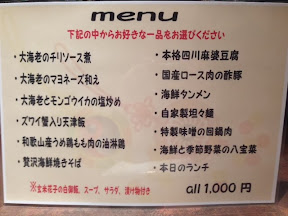 menu
下記の中からお好きな一品をお選びください
・大海老のチリソース煮
・大海老のマヨネーズ和え
・大海老とモンゴウイカの塩炒め
・ズワイ蟹入り天津飯
・和歌山産うめ鶏もも肉の油淋鶏
・贅沢海鮮焼きそば
・本格四川麻婆豆腐
・国産ロース肉の酢豚
・海鮮タンメン
・自家製坦々麺
・特製味噌の回鍋肉
・海鮮と季節野菜の八宝菜
・本日のランチ
※玄米花子の白御飯、スープ、サラダ、漬け物付き
all 1,000 円